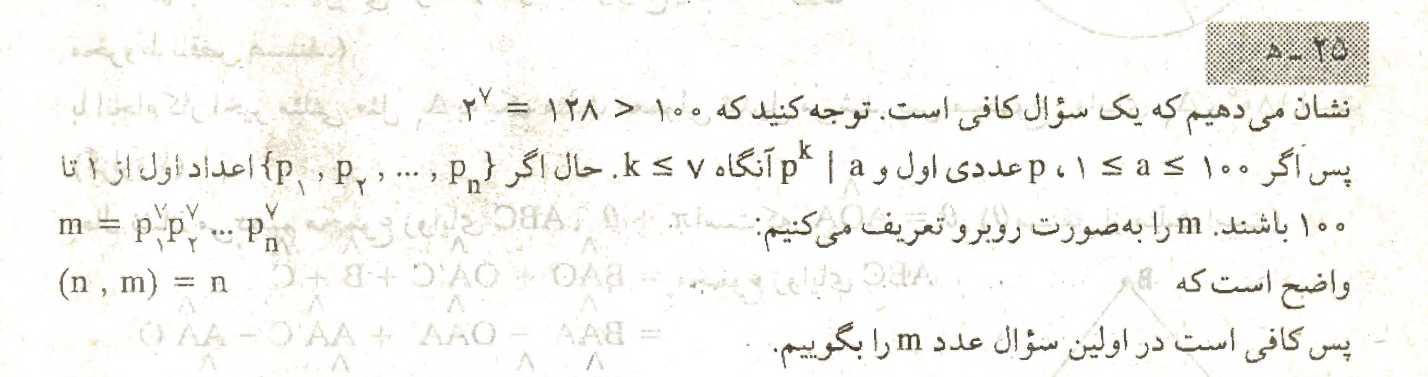 ۲۵ ـ ۵
نشان می‌دهیم که یک سؤال کافی است. توجه کنید که ۱۰۰ < ۱۲۸ = ۲^۷
پس اگر ۱ ≤ a ≤ ۱۰۰ ، p عددی اول و p^k | a آنگاه k ≤ ۷. حال اگر {p₁ , p₂ , ... , pₙ} اعداد اول از ۱ تا
۱۰۰ باشند. m را به‌صورت روبرو تعریف می‌کنیم: m = p₁^۷ p₂^۷ ... pₙ^۷
واضح است که (n , m) = n
پس کافی است در اولین سؤال عدد m را بگوییم.